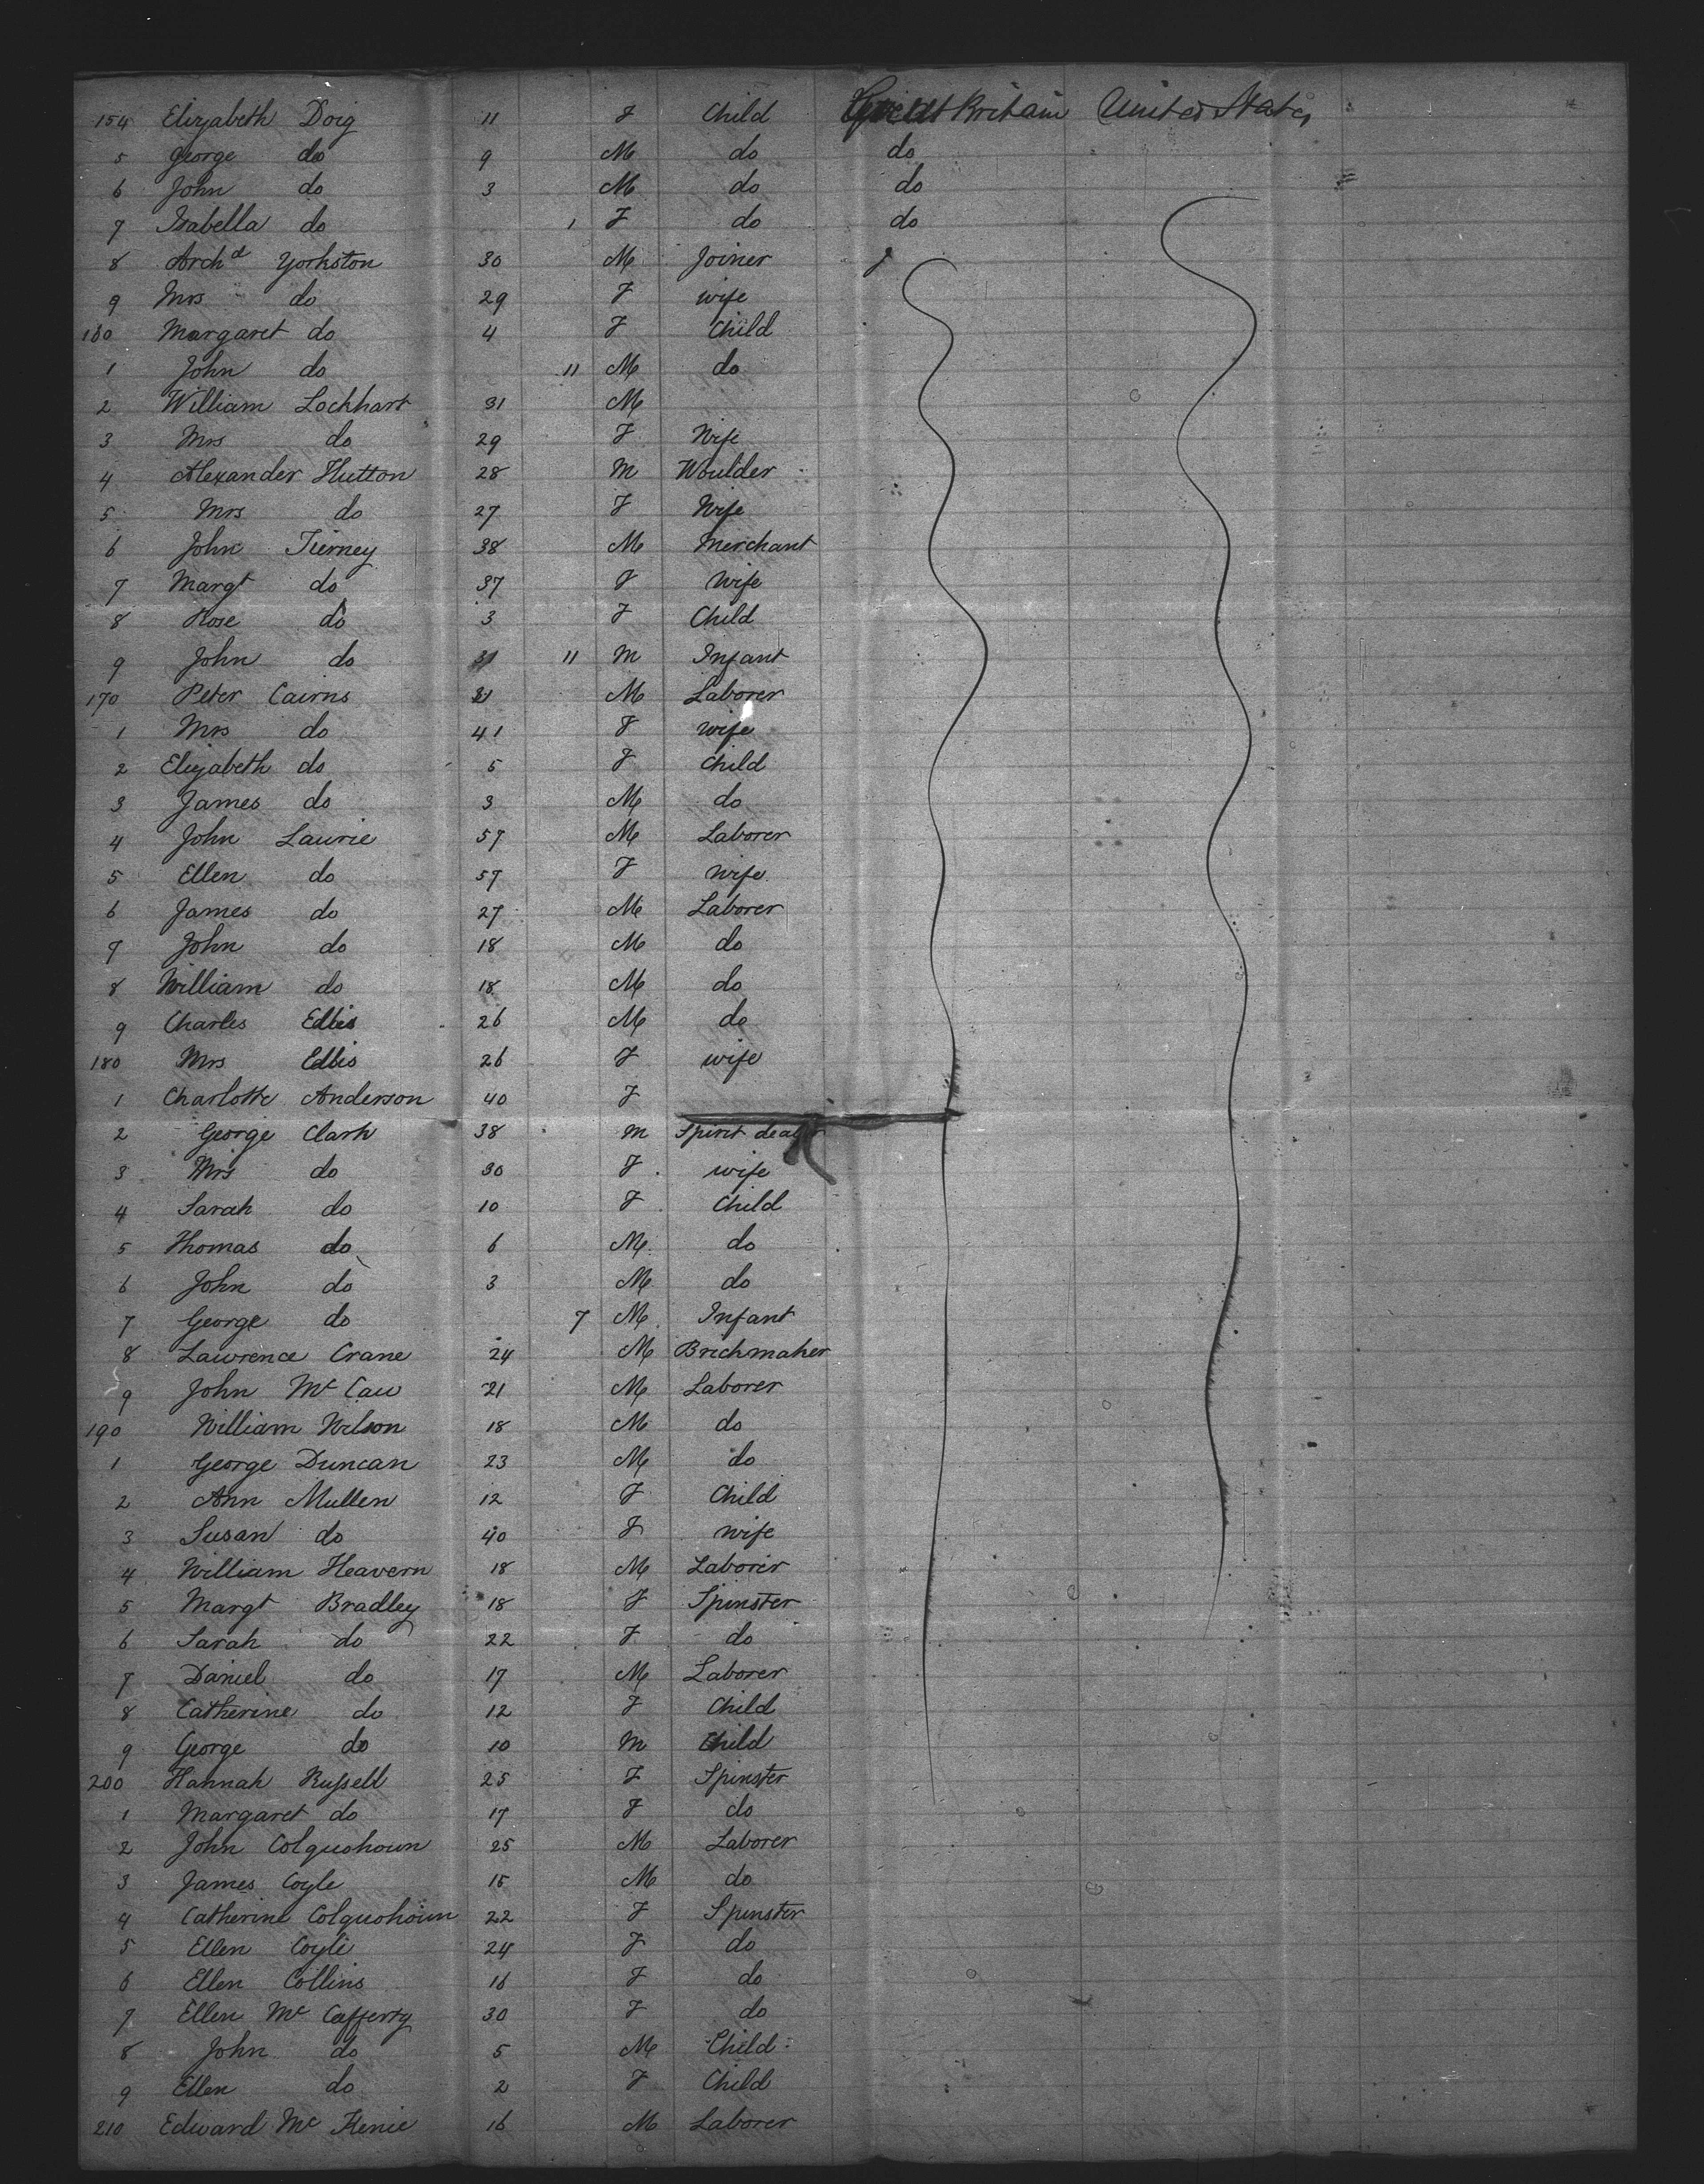 154 Elizabeth Doig 11 F Child Great Britain United States
5 George do 9 M do do
6 John do 3 M do do
7 Isabella do 1 F do do
8 Archd Yorkston 30 M Joiner
9 Mrs do 29 F wife
160 Margaret do 4 F Child
1 John do 11 M do
2 William Lockhart 31 M
3 Mrs do 29 F Wife
4 Alexander Hutton 28 M Moulder
5 Mrs do 27 F Wife
6 John Tierney 38 M Merchant
7 Margt do 37 F Wife
8 Rose do 3 F Child
9 John do 11 M Infant
170 Peter Cairns M Laborer
1 Mrs do 41 F wife
2 Elizabeth do 5 F Child
3 James do 3 M do
4 John Laurie 57 M Laborer
5 Ellen do 57 F Wife
6 James do 27 M Laborer
7 John do 18 M do
8 William do 18 M do
9 Charles 26 M do
180 Mrs 26 F wife
1 Charlotte Anderson 40 F
2 George Clark 38 M Spirit dealer
3 Mrs do 30 F wife
4 Sarah do 10 F Child
5 Thomas do 6 M do
6 John do 3 M do
7 George do 7 M Infant
8 Lawrence Crane 24 M Brickmaker
9 John Mc Caw 21 M Laborer
190 William Wilson 18 M do
1 George Duncan 23 M do
2 Ann Mullen 12 F Child
3 Susan do 40 F wife
4 William Heavern 18 M Laborer
5 Margt Bradley 18 F Spinster
6 Sarah do 22 F do
7 Daniel do 17 M Laborer
8 Catherine do 12 F Child
9 George do 10 M Child
200 Hannah Russell 25 F Spinster
1 Margaret do 17 F do
2 John Colquohoun 25 M Laborer
3 James Coyle 15 M do
4 Catherine Colquohoun 22 F Spinster
5 Ellen Coyle 24 F do
6 Ellen Collins 16 F do
7 Ellen Mc Cafferty 30 F do
8 John do 5 M Child
9 Ellen do 2 F Child
210 Edward Mc Kenie 16 M Laborer